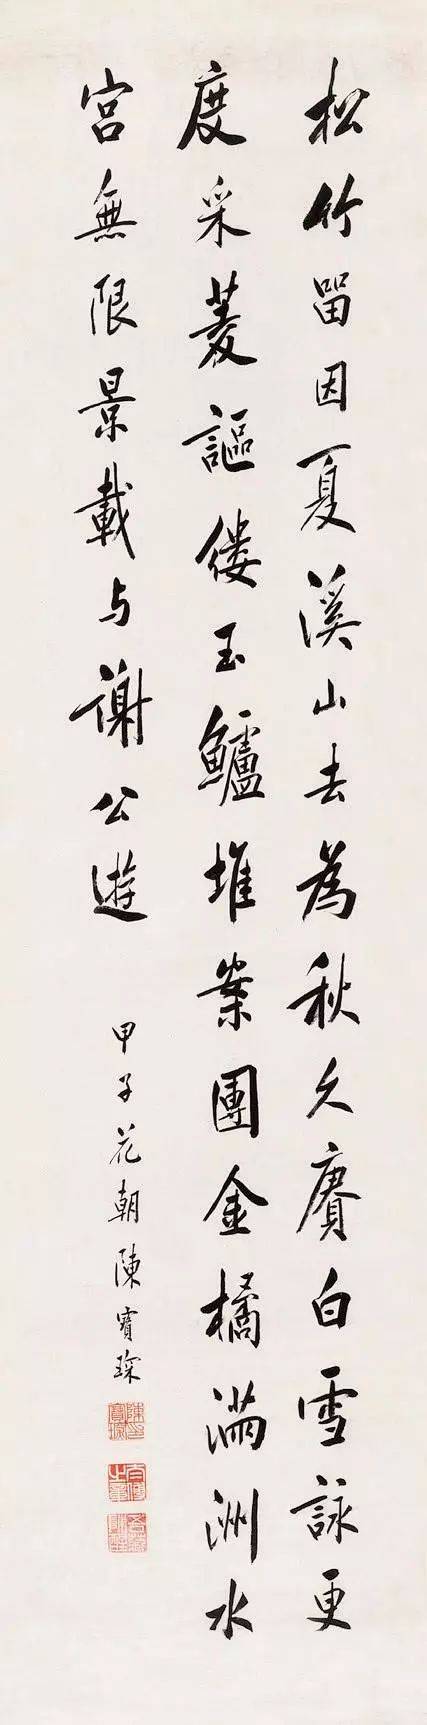 松竹留因夏溪山去為秋久賡白雪詠更
度采菱謳縷玉鱸堆案團金橘滿洲水
宮無限景載与謝公遊
甲子花朝陳寶琛
陳印寶琛
太傅之章